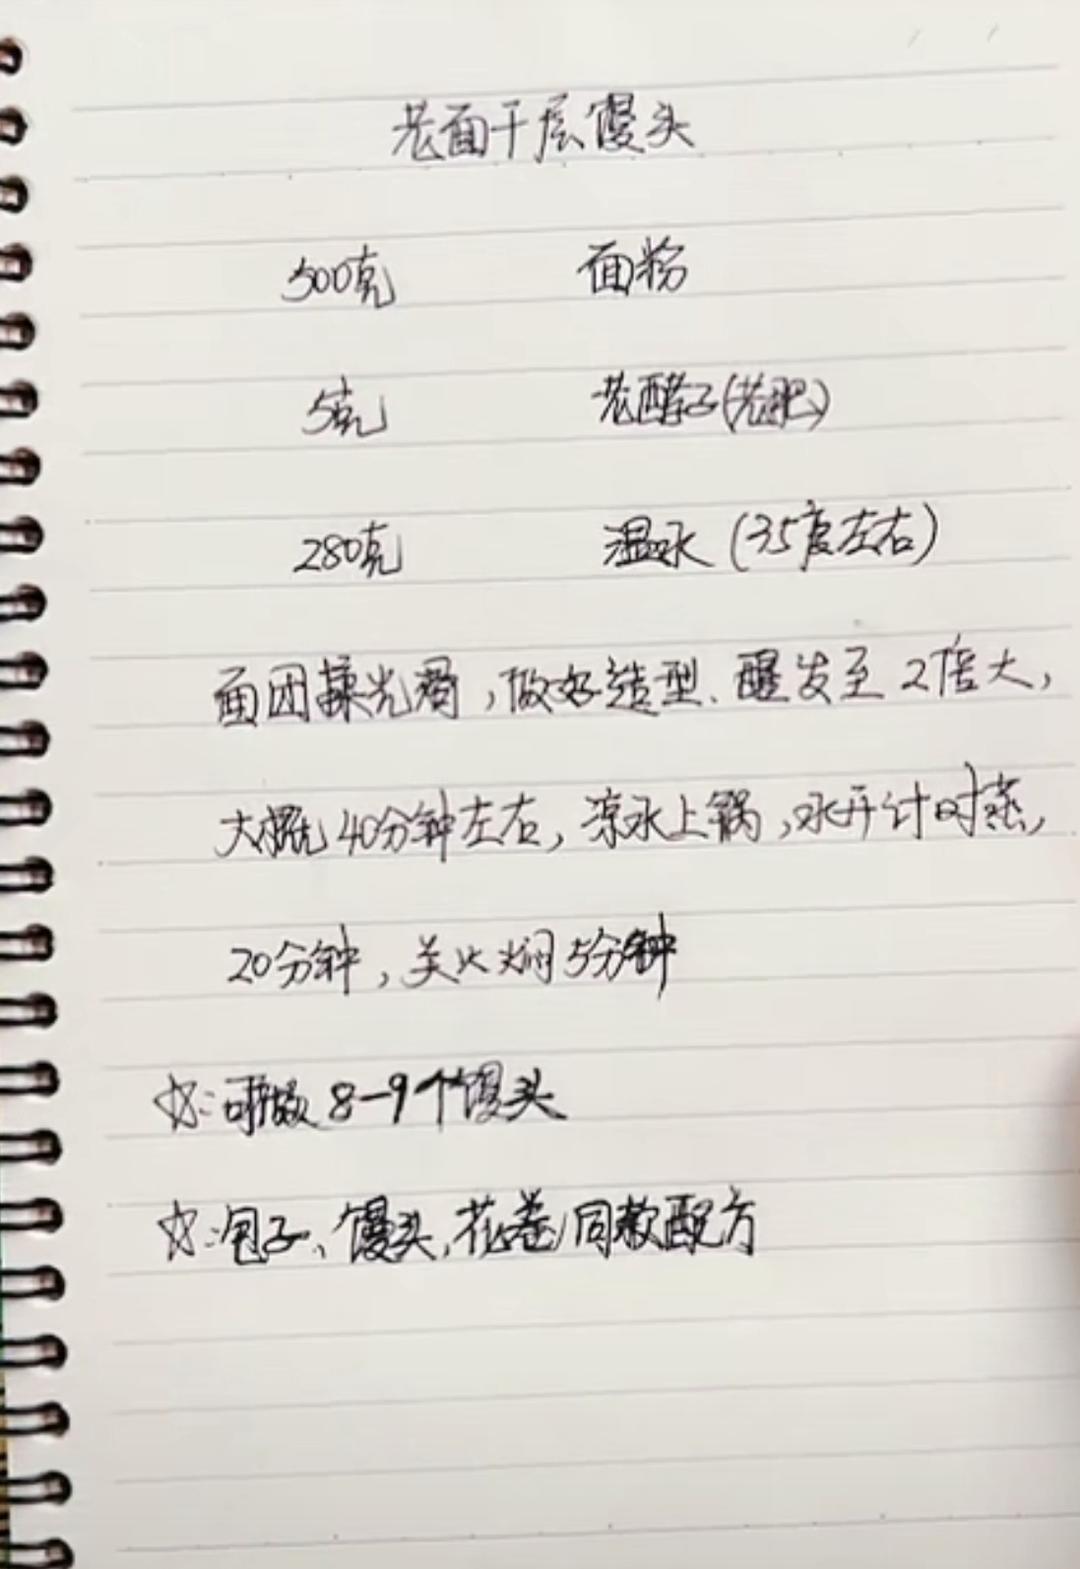 老面千层馒头
500克 面粉
5克 老酵子(老肥)
280克 温水(35度左右)
面团揉光滑,做好造型、醒发至2倍大,
大概40分钟左右,凉水上锅,水开计时蒸,
20分钟,关火焖5分钟
☆:可做8-9个馒头
☆:包子、馒头,花卷/同款配方